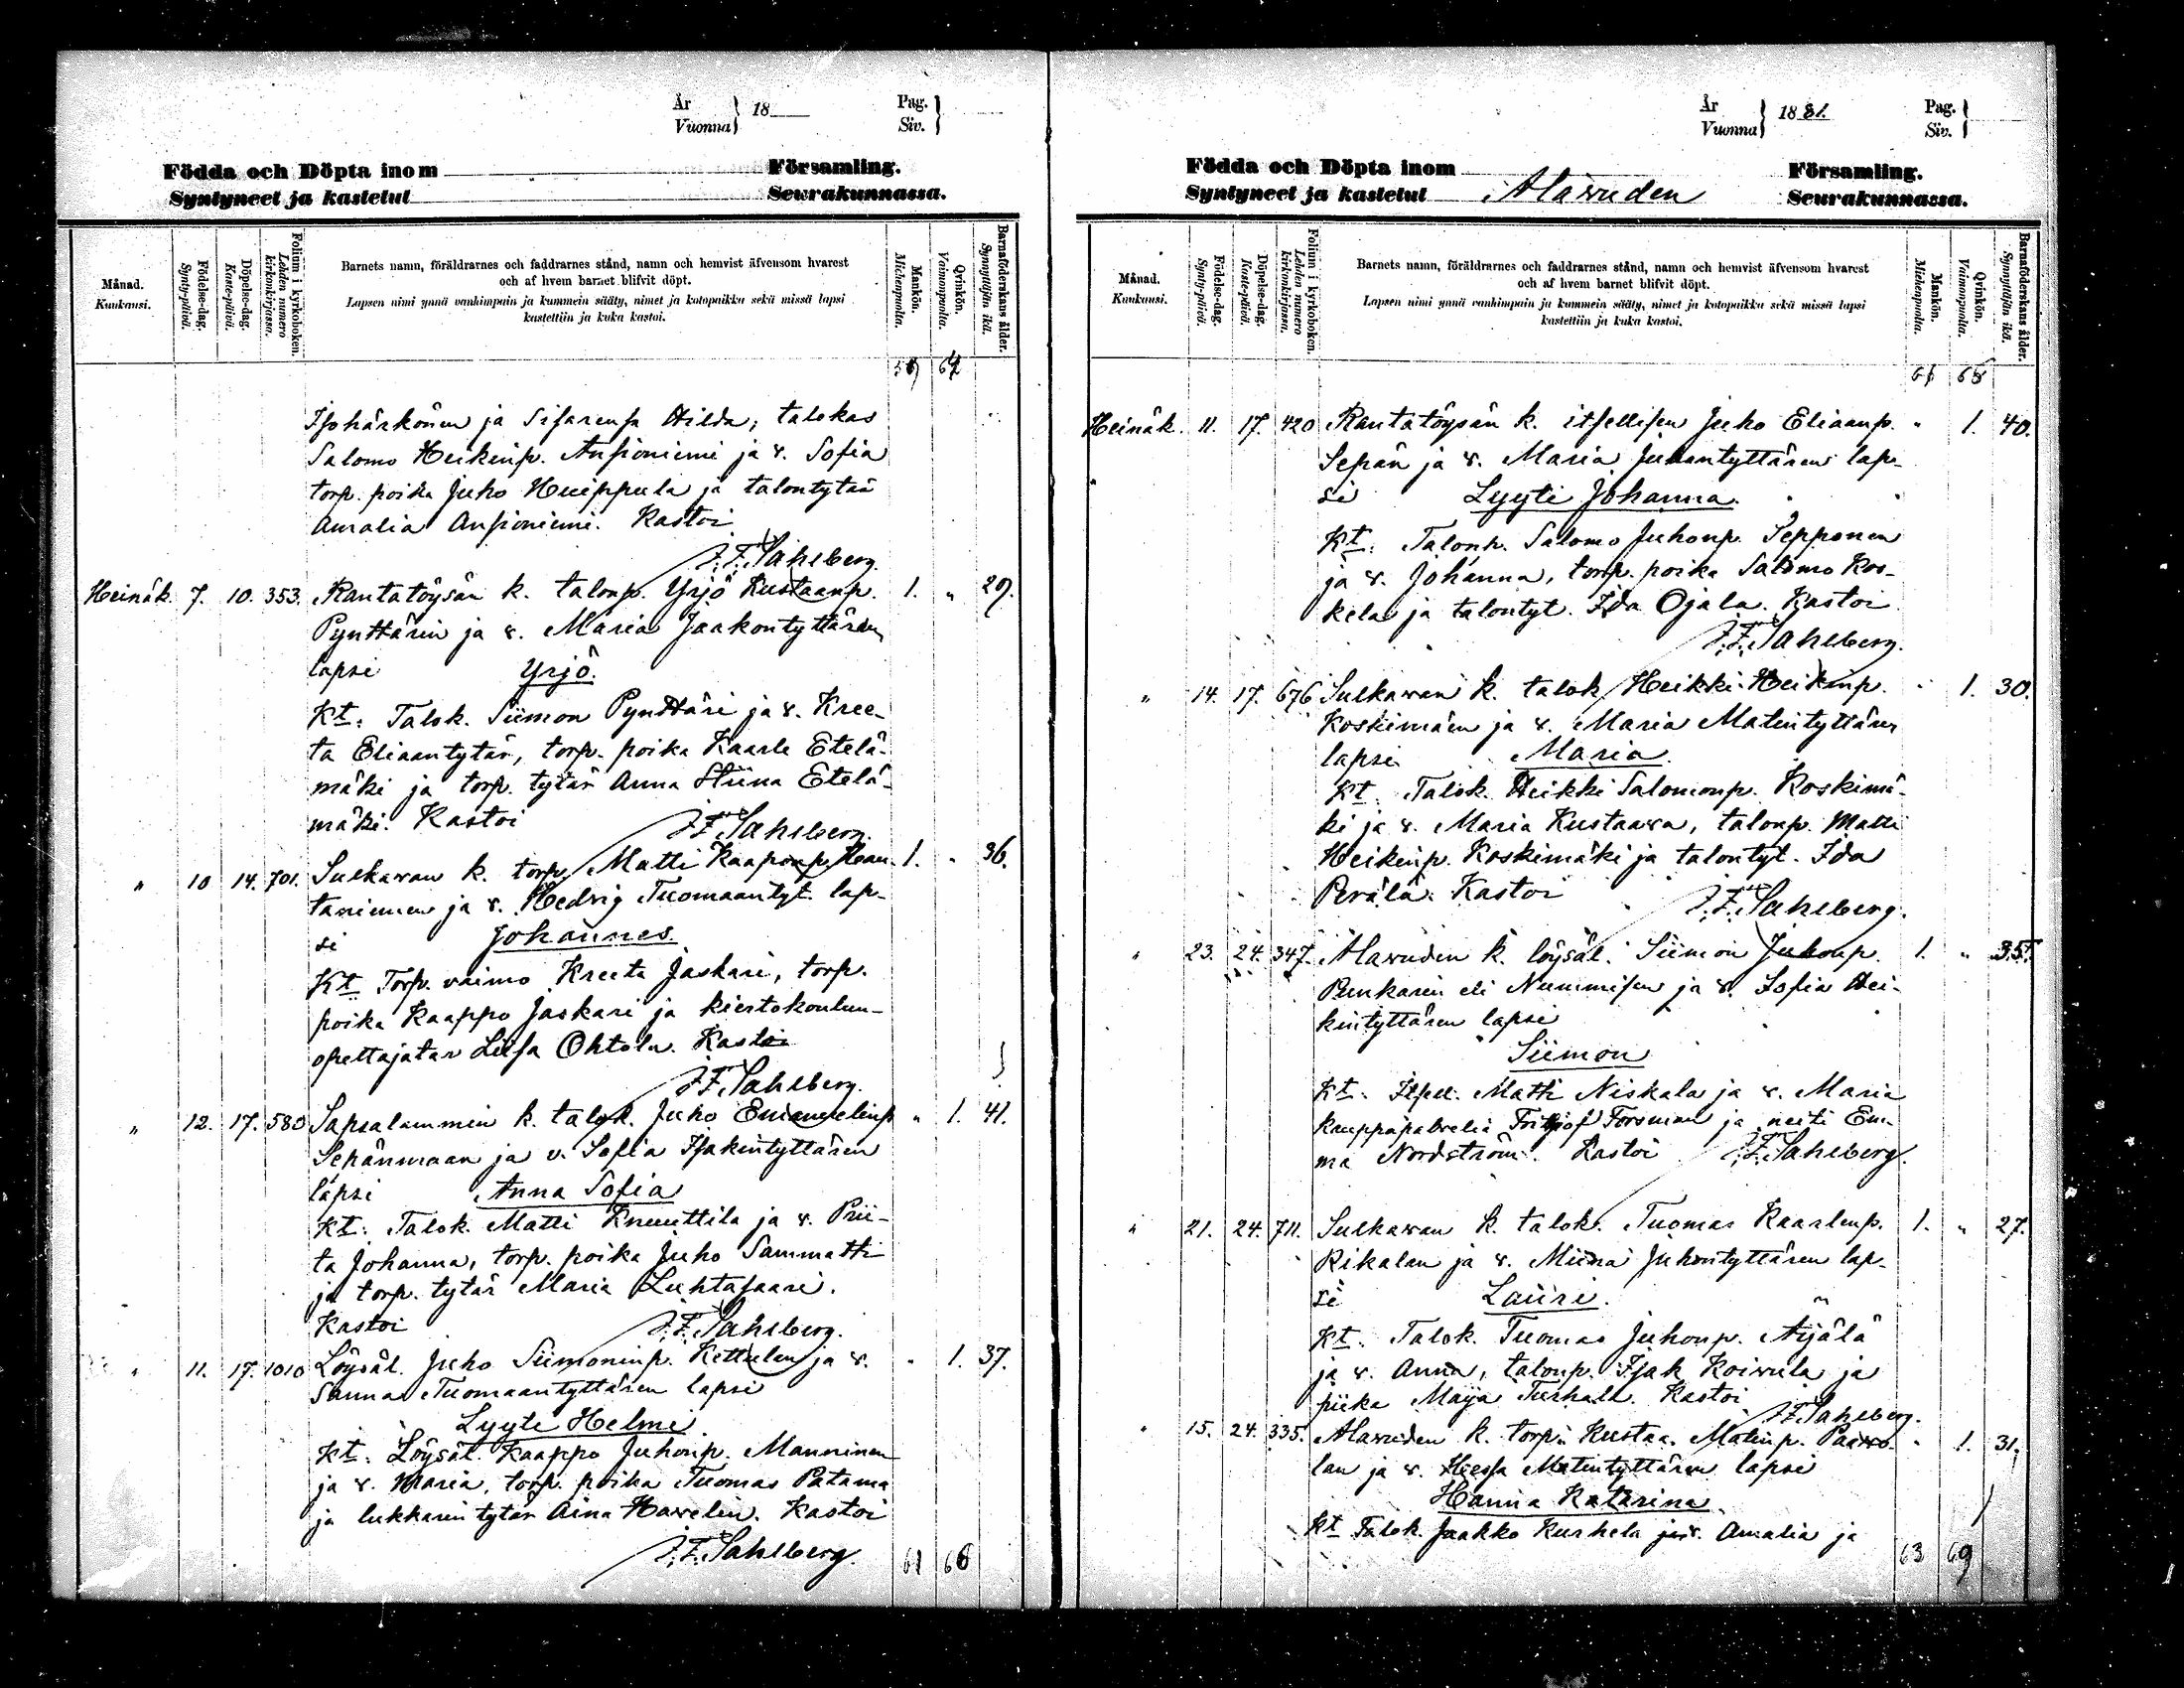 År
Vuonna } 18
Pag.
Siv. }
Födda och Döpta inom Församling.
Syntyneet ja kastetut Seurakunnassa.
Månad.
Kuukausi.
Födelse-dag.
Synty-päivä.
Döpelse-dag.
Kaste-päivä.
Folium i kyrkoboken.
Lehden numero kirkonkirjassa.
Barnets namn, föräldrarnes och faddrarnes stånd, namn och hemvist äfvensom hvarest
och af hvem barnet blifvit döpt.
Lapsen nimi ynnä vanhimpain ja kummein sääty, nimet ja kotopaikka sekä missä lapsi
kastettiin ja kuka kastoi.
Mankön.
Miehenpuolta.
Qvinkön.
Vaimonpuolta.
Barnaföderskans ålder.
Synnyttäjän ikä.
ja Hilda, talokas
Salomo Heikinp. Ansioniemi ja v. Sofia
torp. poika Juho Huippula ja talontytär
Amalia Ansioniemi. Kastoi
J.F. Sahlberg.
Heinäk. 7. 10. 353. Rantatöysän k. talonp. Yrjö Kustaanp. 1. " 29.
Pynttärin ja v. Maria Jaakontyttären
lapsi Yrjö.
Kt: Talok. Siimon Pynttäri ja v. Kree-
ta Eliaantytär, torp. poika Kaarle Etelä-
mäki ja torp. tytär Anna Stiina Etelä-
mäki. Kastoi J.F. Sahlberg.
" 10 14. 701. Sulkavan k. torp. Matti Kaaponp. Ran- 1. " 36.
taniemen ja v. Hedvig Tuomaantyt. lap-
si Johannes.
Kt Torp. vaimo Kreeta Jaskari, torp.
poika Kaappo Jaskari ja kiertokoulun-
opettajatar Liisa Ohtola. Kastoi
J.F. Sahlberg.
" 12. 17. 580 Sapsalammin k. talok. Juho Emanuelinp. " 1. 41.
Sepänmaan ja v. Sofia Isakintyttären
lapsi Anna Sofia
Kt: Talok. Matti Knuuttila ja v. Prii-
ta Johanna, torp. poika Juho Sammatti
ja torp. tytär Maria Luhtasaari.
Kastoi J.F. Sahlberg.
" 11. 17. 1010 Löysäl. Juho Siimoninp. ja v. " 1. 37.
Sanna Tuomaantyttären lapsi
Lyyti Helmi
Kt: Löysäl. Kaappo Juhonp. Manninen
ja v. Maria, torp. poika Tuomas Patama
ja lukkarin tytär Aina Havelin. Kastoi
J.F. Sahlberg.
61 66
År
Vuonna } 1881.
Pag.
Siv. }
Födda och Döpta inom Församling.
Syntyneet ja kastetut Alavuden Seurakunnassa.
Månad.
Kuukausi.
Födelse-dag.
Synty-päivä.
Döpelse-dag.
Kaste-päivä.
Folium i kyrkoboken.
Lehden numero kirkonkirjassa.
Barnets namn, föräldrarnes och faddrarnes stånd, namn och hemvist äfvensom hvarest
och af hvem barnet blifvit döpt.
Lapsen nimi ynnä vanhimpain ja kummein sääty, nimet ja kotopaikka sekä missä lapsi
kastettiin ja kuka kastoi.
Mankön.
Miehenpuolta.
Qvinkön.
Vaimonpuolta.
Barnaföderskans ålder.
Synnyttäjän ikä.
Heinäk. 11. 17. 420 Rantatöysän k. itsellisen Juho Eliaanp. " 1. 40.
Sepän ja v. Maria Juhantyttären lap-
si Lyyti Johanna.
Kt: Talonp. Salomo Juhonp. Sepponen
ja v. Johanna, torp. poika Salomo Kos-
kela ja talontyt. Ida Ojala. Kastoi
J.F. Sahlberg.
" 14. 17. 676 Sulkavan k. talok. Heikki Heikinp. " 1. 30.
Koskimäen ja v. Maria Matintyttären
lapsi Maria.
Kt: Talok. Heikki Salomonp. Koskimä-
ki ja v. Maria Kustaava, talonp. Matti
Heikinp. Koskimäki ja talontyt. Ida
Perälä. Kastoi J.F. Sahlberg.
" 23. 24. 347. Alavuden k. löysäl. Siimon Juhonp. 1. " 35.
Punkarin eli Nummisen ja v. Sofia Hei-
kintyttären lapsi
Siimon
Kt: Itsell. Matti Niskala ja v. Maria
kauppapalvelia Fritjiof Forsman ja neiti Em-
ma Nordström. Kastoi J.F. Sahlberg.
" 21. 24. 711. Sulkavan k. talok. Tuomas Kaarlenp. 1. " 27.
Rikalan ja v. Miina Juhontyttären lap-
si Lauri.
Kt: Talok. Tuomas Juhonp. Äijälä
ja v. Anna, talonp. Isak Koivula ja
piika Maija Kastoi J.F. Sahlberg.
" 15. 24. 335. Alavuden k. torp. Kustaa Matinp. Paavo- " 1. 31.
lan ja v. Hessa Matintyttären lapsi
Hanna Katarina
Kt Talok. Jaakko Kurhela ja v. Amalia ja
63 69